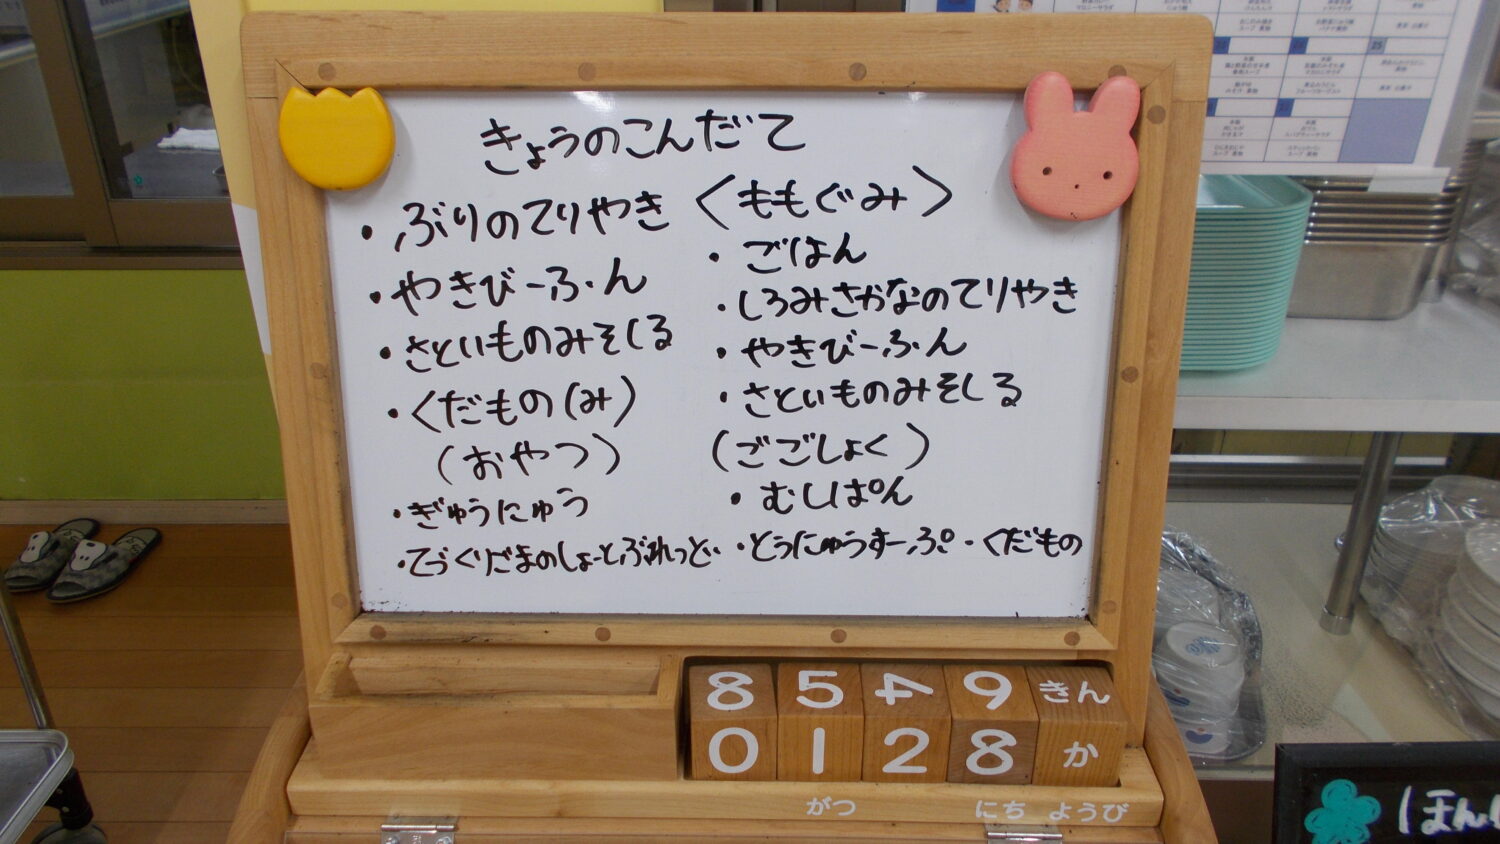 きょうのこんだて
・ぶりのてりやき
・やきびーふん
・さといものみそしる
・くだもの(み)
(おやつ)
・ぎゅうにゅう
・てづくりごまのしょーとぶれっど
〈ももぐみ〉
・ごはん
・しろみさかなのてりやき
・やきびーふん
・さといものみそしる
(ごごしょく)
・むしぱん
・とうにゅうすーぷ・くだもの
8 5 4 9 きん
0 1 2 8 か
がつ にち ようび